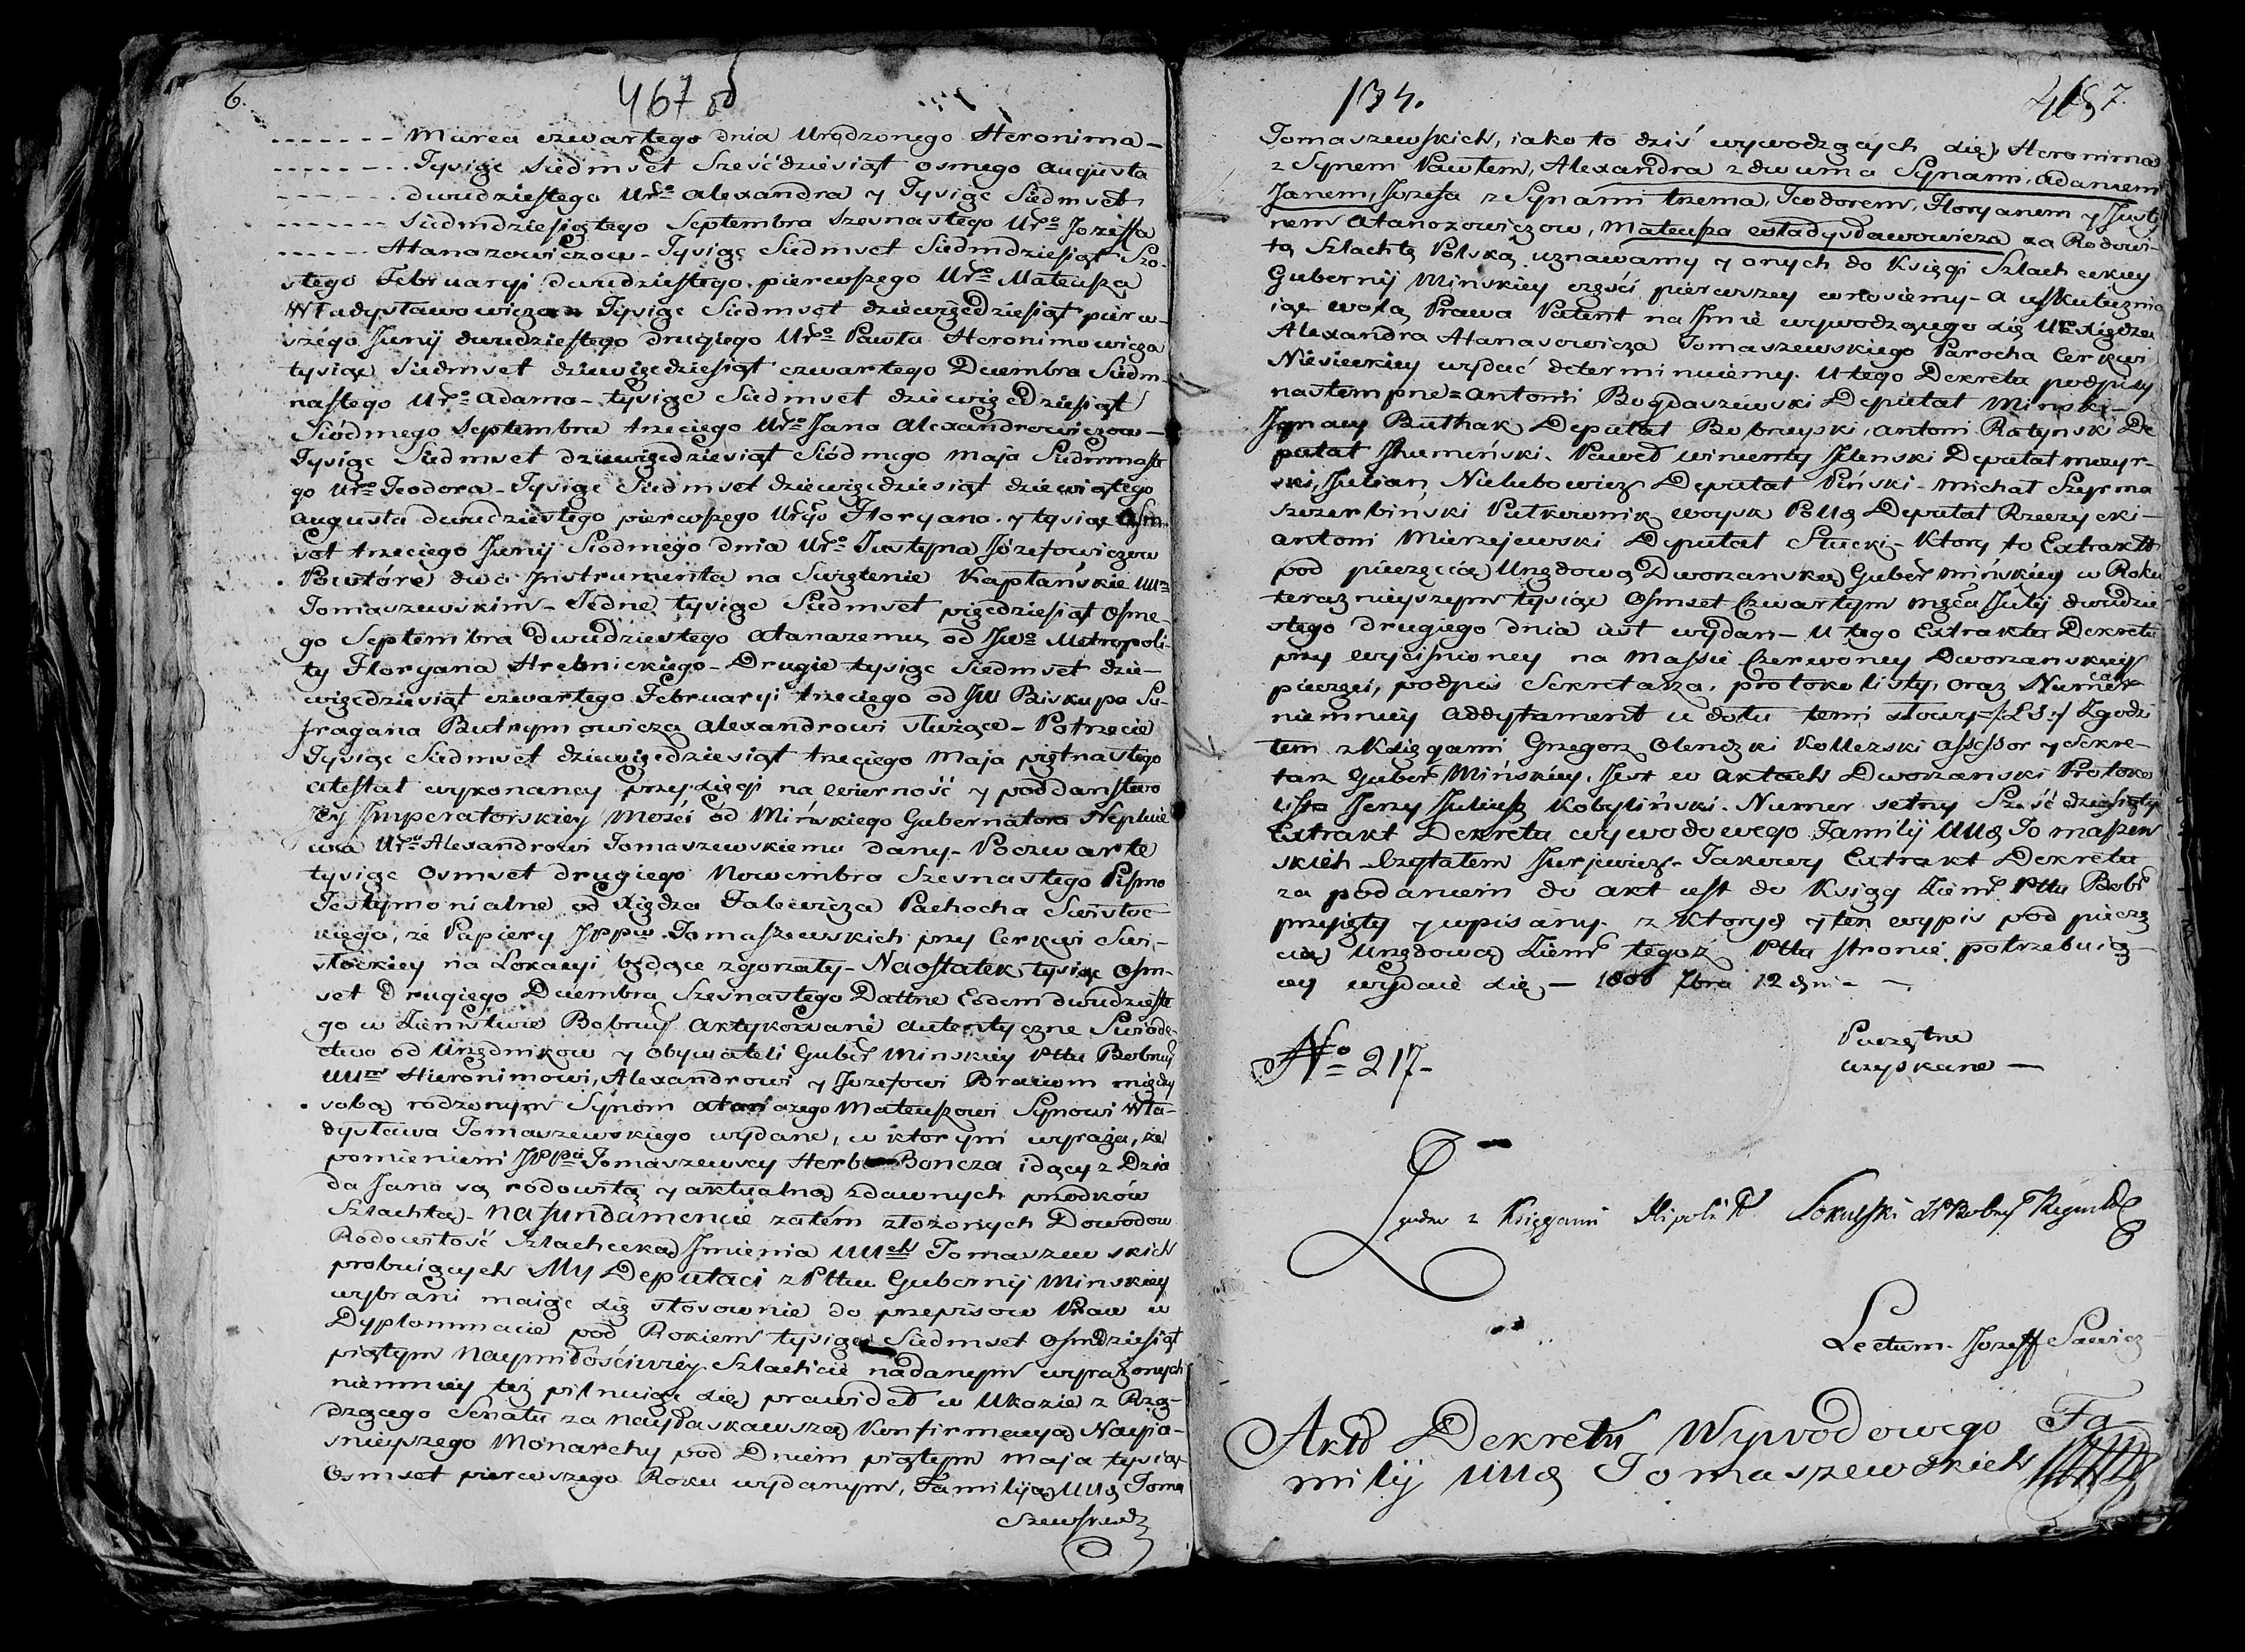 6.
467 od
- - - - - - - Marca czwartego dnia Urodzonego Heronima -
- - - - - - - Tysiąc Siedmset Sześćdziesiąt osmego Augusta
- - - - - - - dwudziestego Urº Alexandra y Tysiąc Siedmset
- - - - - - - Siedmdziesiątego Septembra szesnastego Urº Jozeffa
- - - - - Atanazowiczow - Tysiąc Siedmset Siedmdziesiąt Szo-
stego Februaryi dwudziestego pierwszego Urº Mateusza
Władysławowicza - Tysiąc Siedmset dziewięćdziesiąt pierw-
szego Junij dwudziestego drugiego Urº Pawła Heronimowicza
tysiąc Siedmset dziewięćdziesiąt czwartego Decembra Siedm-
nastego Urº Adama - tysiąc Siedmset dziewięćdziesiąt
Siódmego Septembra trzeciego Urº Jana Alexandrowiczow -
Tysiąc Siedmset dziewięćdziesiąt Siódmego Maja Siedmnaste
go Urº Teodora - Tysiąc Siedmset dziewięćdziesiąt dziewiątego
Augusta dwudziestego pierwszego Urgo Floryana y tysiąc Osm-
set trzeciego Junij Siodmego dnia Urº Justyna Józefowiczow
Powtóre dwa Jnstrumenta na Swięcenie Kapłańskie
Tomaszewskim - Jedne tysiąc Siedmset pięćdziesiąt Osme-
go Septembra dwudziestego Atanazemu od Jwº Metropoli-
ty Floryana Hrebnickiego - Drugie tysiąc Siedmset dzie-
więćdziesiąt czwartego Februaryi trzeciego od JW Biskupa Su-
fragana Butrymowicza Alexandrowi służące - Potrzecie
Tysiąc Siedmset dziewięćdziesiąt trzeciego Maja piętnastego
Atestat wykonaney przysięgi na wierność y poddaństwo
Jey Jmperatorskiey Mości od Mińskiego Gubernatora Neplue
wa Urº Alexandrowi Tomaszewskiemu dany - Poczwarte
tysiąc Osmset drugiego Nowembra Szesnastego Pismo
Testymonialne od Xiędza Falewicza Parocha Swisłoc-
kiego, że Papiery Jppw Tomaszewskich przy Cerkwi Swi-
słockiey na Lokacyi będące zgorzały - Naostatek tysiąc Osm-
set Drugiego Decembra Szesnastego Dattne Eodem dwudzieste
go w Ziemstwie Bobruy Aktykowane autentyczne Swiade-
ctwo od Urzędnikow y Obywateli Guber Minskiey Pttu Bobruy
Hieronimowi, Alexandrowi y Jozefowi Braciom między
sobą rodzonym Synom Atanazego Mateuszowi Synowi Wła-
dysława Tomaszewskiego wydane, w ktorym wyraża, że
pomienieni Tomaszewscy Herbu Boncza idący z Dzia
da Jana są rodowitą y aktualną zdawnych przodków
Szlachtą - Na fundamencie zatem złożonych Dowodow
Rodowitość Szlachecką Jmienia Tomaszewskich
probuiących My Deputaci z Pttw Gubernij Minskiey
wybrani maiąc się stosownie do przepisow Praw w
Dyplommacie pod Rokiem tysiąc Siedmset Osmdziesiąt
piątym Naymiłościwiey Szlachcie nadanym wyrażonych
niemniey też pilnuiąc się prawideł w Ukazie z Rzą-
dzącego Senatu za Nayłaskawszą Konfirmacyą Nayia-
snieyszego Monarchy pod Dniem piątym Maja tysiąc
Osmset pierwszego Roku wydanym, Familią Toma
szewskich
134.
467.
Tomaszewskich, iako to dziś wywodzących się Heronima
z Synem Pawłem, Alexandra z dwuma Synami, Adamem
Janem, Jozefa z Synami trzema, Teodorem, Floryanem y Justy
nem Atanazowiczow, Mateusza Władysławowicza za Rodowi-
tą Szlachtę Polską uznawamy y onych do Księgi Szlacheckiey
Gubernij Minskiey części pierwszey wnosiemy - A uskuteczniа
iąc wolą Prawa Patent na Jmie wywodzącego się Urº Xiędza
Alexandra Atanasowicza Tomaszewskiego Parocha Cerkwi
Niesieckiey wydać determinuiemy. U tego Dekretu podpisy
nastempne = Antoni Bogdaszewski Deputat Minski -
Jgnacy Bułhak Deputat Bobruyski, Antoni Ratynski De
putat Jhumeński. Paweł Wincenty Jelenski Deputat Mozyr-
ski, Julian Nielubowicz Deputat Piński - Michał Szyrma
Szczerbiński Pułkownik woysk Poll Deputat Rzeczycki -
Antoni Mierzejewski Deputat Słucki - Ktory to Extrakt
pod pieczęcią Urzędową Dworzanską Guber Mińskiey w Roku
teraznieyszym tysiąc Osmset Czwartym Mca Julij dwudzie
stego drugiego dnia iest wydan - U tego Extraktu Dekretu
przy wycisnioney na Massie Czerwoney Dworzanskiey
pieczęci, podpis Sekretarza, protokolisty, oraz Numer
niemniey Addytament u dołu temi słowy = /:LS:/ Zgodz
tem z Księgami Grzegorz Oleniczki Kolleżski Assessor y Sekre-
tarz Guber Mińskiey. Jest w Aktach Dworzanski Protoko
lista Jerzy Juliusz Kobyliński. Numer setny Sześćdziesiąty
Extrakt Dekretu wywodowego Familij Tomaszew
skich - Czytałem Jurjewicz - Jakowy Extrakt Dekretu
za podaniem do Akt iest do Ksiąg Ziem Pttu Bobr
przyięty y wpisany. z Ktorych y ten wypis pod pieczę
cią Urzędową Ziem tegoż Pttu stronie potrzebuią-
cey wydaie się - 1806 7bra 12 dnia -
Nº 217.-
Pieczętne
uzyskane -
Zgodno z Księgami Hipolit Sokulski
Lectum. Jozeff Sawicz
Akt Dekretu Wywodowego Fa
milij Tomaszewskich